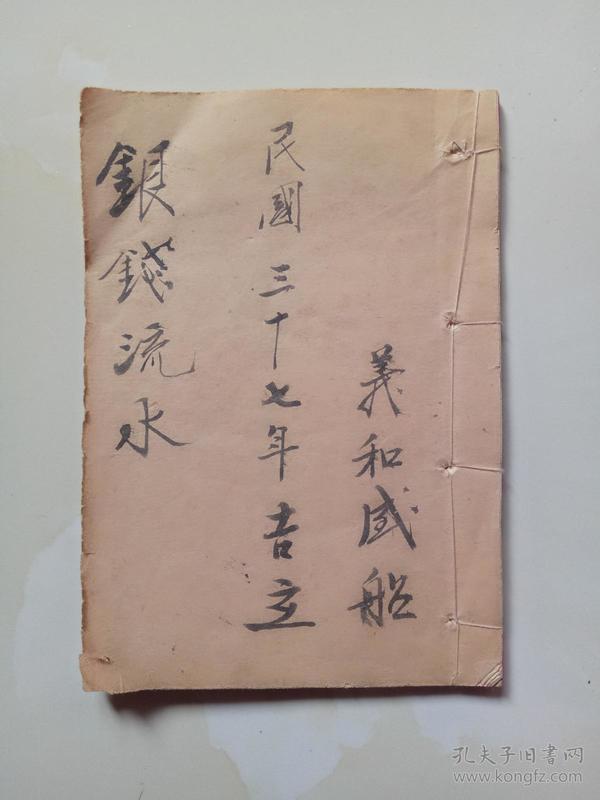 義和盛船
民國三十七年吉立
銀錢流水
孔夫子旧書网
www.kongfz.com